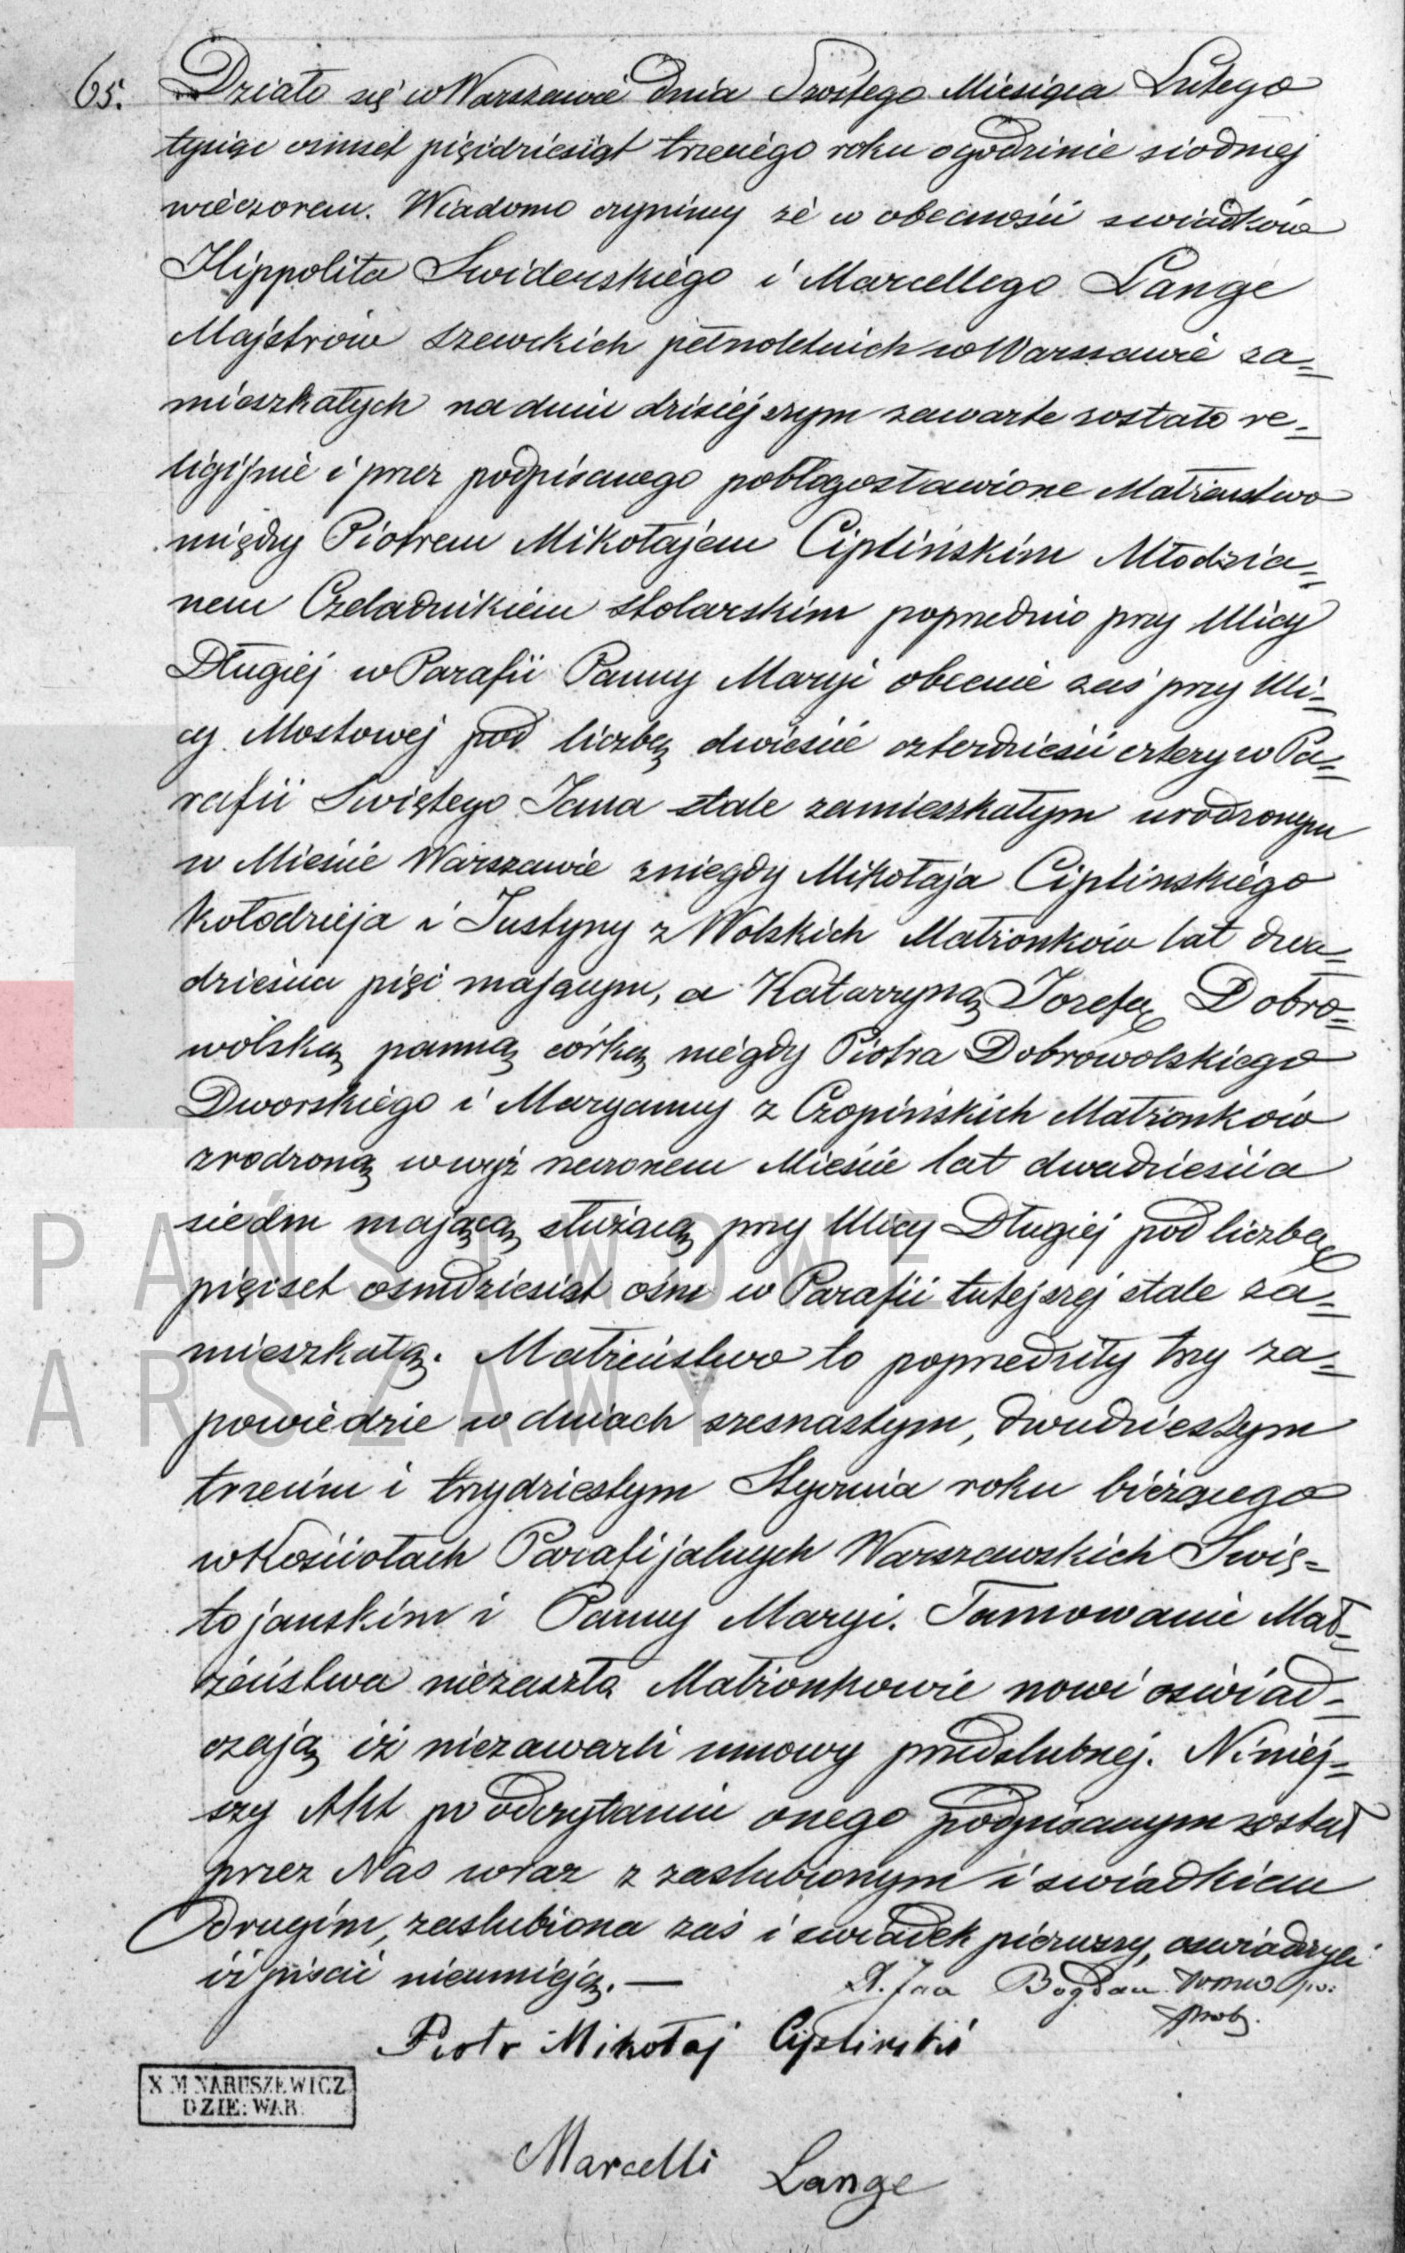 65. Działo się w Warszawie dnia Szóstego Miesiąca Lutego
tysiąc osimset pięćdziesiąt trzeciego roku o godzinie siódmej
wieczorem. Wiadomo czynimy że w obecności swiadków
Hippolita Swiderskiego i Marcellego Lange
Majstrów szewckich pełnoletnich w Warszawie za=
mieszkałych na dniu dzisiejszym zawarte zostało re=
ligijnie i przez podpisanego pobłogosławione Małżeństwo
między Piotrem Mikołajem Ciplińskim Młodzia=
nem Czeladnikiem stolarskim poprzednio przy Ulicy
Długiéj w Parafii Panny Maryi obecnie zaś przy Uli=
cy Mostowej pod liczbą dwieście czterdzieści cztery w Pa=
rafii Swiętego Jana stale zamieszkałym urodzonym
w Mieście Warszawie z niegdy Mikołaja Ciplinskiego
Kołodzieja i Justyny z Wolskich Małżonków lat dwa=
dzieścia pięć mającym, a Katarzyną Jozefą Dobro=
wolską panną córką niegdy Piotra Dobrowolskiego
Dworskiego i Maryanny z Czopińskich Małżonków
zrodzoną w wyż rzeczonem Mieście lat dwadzieścia
siedm mającą służącą przy Ulicy Długiéj pod liczbą
pięćset osmdziesiąt ośm w Parafii tutejszej stale za=
mieszkałą. Małżeństwo to poprzedziły trzy za=
powiedzie w dniach szesnastym, dwudziestym
trzecim i trzydziestym Stycznia roku bieżącego
w Kościołach Parafijalnych Warszawskich Swię=
tojanskim i Panny Maryi. Tamowanie Mał=
żeństwa niezaszło Małżonkowie nowi oswiad=
czają iż niezawarli umowy przedslubnej. Niniej=
szy Akt po odczytaniu onego podpisanym został
przez Nas wraz z zaslubionym i swiadkiem
drugim, zaslubiona zaś i swiadek pierwszy, oswiadczyli
iż pisać nieumieją. —
X. Jan Bogdan
Piotr Mikołaj Cipliński
X M NARUSZEWICZ
DZIE: WAR.
Marcelli Lange
PAŃSTWOWE
ARSZAWY